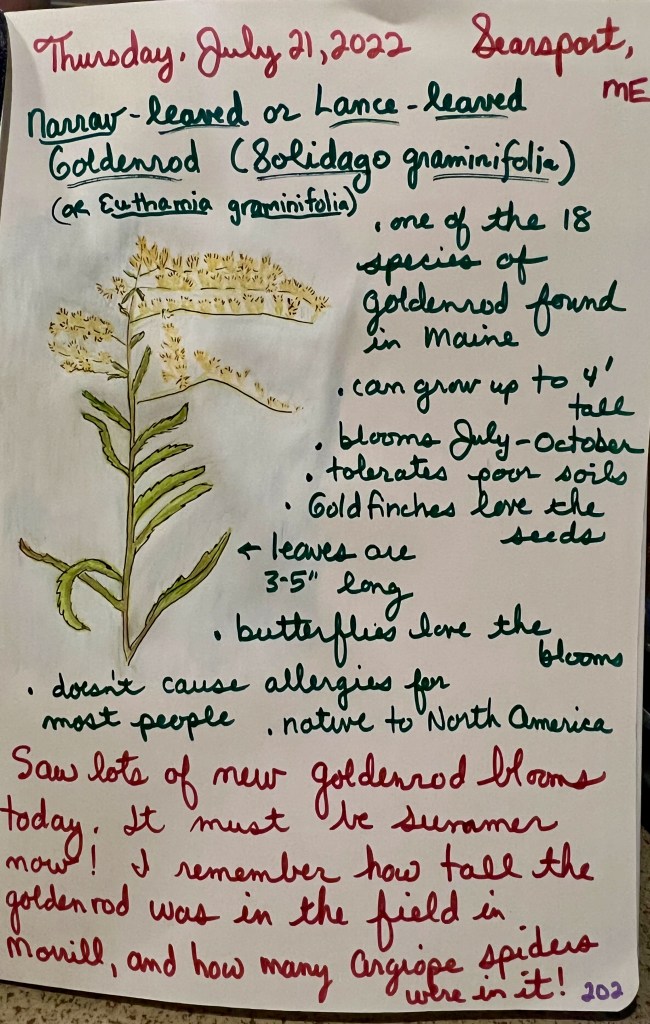 Thursday, July 21, 2022 Searsport,
ME
Narrow-leaved or Lance-leaved
Goldenrod (Solidago graminifolia)
(or Euthamia graminifolia)
• one of the 18
species of
goldenrod found
in Maine
• can grow up to 4'
tall
• blooms July-October
• tolerates poor soils
• Goldfinches love the
seeds
← leaves are
3-5" long
• butterflies love the
blooms
• doesn't cause allergies for
most people • native to North America
Saw lots of new goldenrod blooms
today. It must be summer
now! I remember how tall the
goldenrod was in the field in
Morrill, and how many argiope spiders
were in it! 202